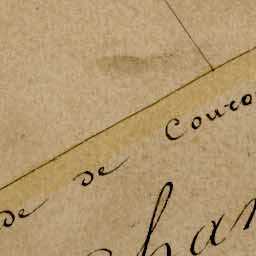 de de Couro
Char